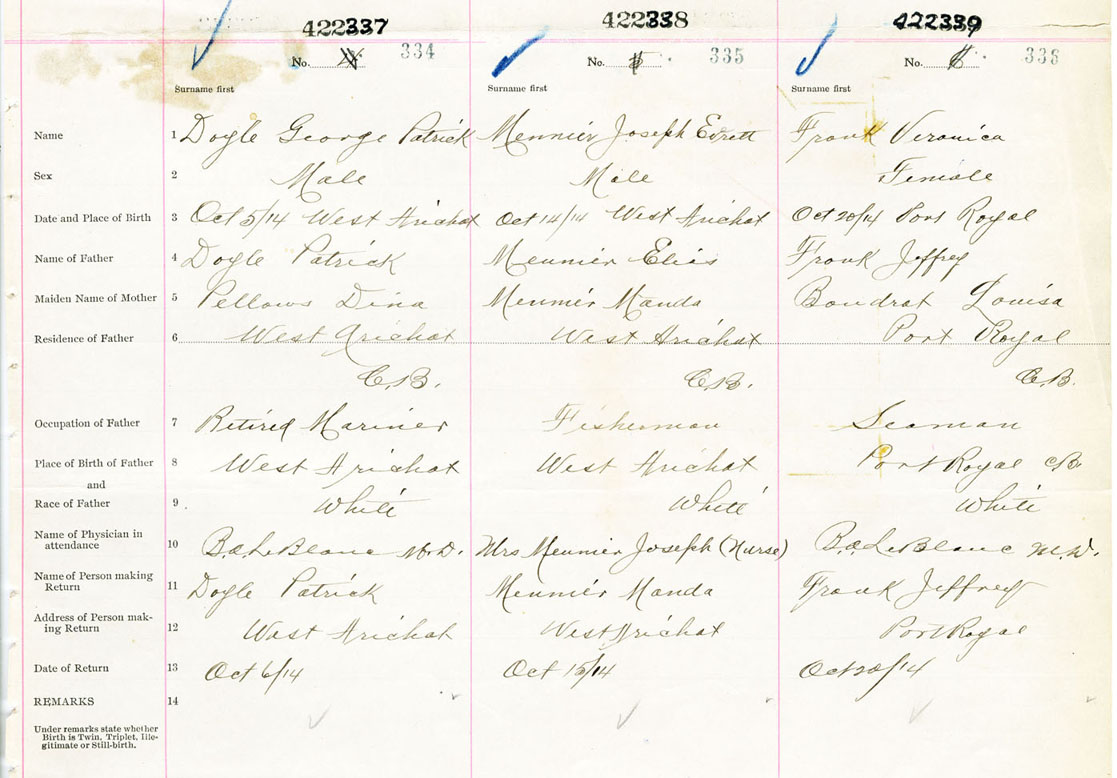 422337 422338 422339
No. 334 No. 335 No. 336
Surname first Surname first Surname first
Name 1 Doyle George Patrick Meunier Joseph Evratt Frank Veronica
Sex 2 Male Male Female
Date and Place of Birth 3 Oct 5/14 West Arichat Oct 14/14 West Arichat Oct 20/14 Port Royal
Name of Father 4 Doyle Patrick Meunier Elias Frank Jeffrey
Maiden Name of Mother 5 Pellows Dina Meunier Manda Boudrot Louisa
Residence of Father 6 West Arichat West Arichat Port Royal
C.B. C.B. C.B.
Occupation of Father 7 Retired Mariner Fisherman Seaman
Place of Birth of Father 8 West Arichat West Arichat Port Royal CB
and
Race of Father 9 White White White
Name of Physician in
attendance 10 B.a. LeBlanc M.D. Mrs Meunier Joseph (Nurse) B.a. LeBlanc M.D.
Name of Person making
Return 11 Doyle Patrick Meunier Manda Frank Jeffrey
Address of Person mak-
ing Return 12 West Arichat West Arichat Port Royal
Date of Return 13 Oct 6/14 Oct 15/14 Oct 20/14
REMARKS 14
Under remarks state whether
Birth is Twin, Triplet, Ille-
gitimate or Still-birth.